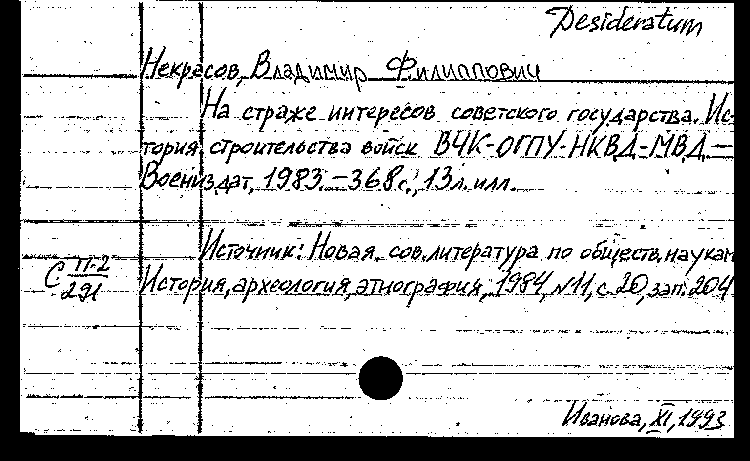 Desideratum
Некрасов, Владимир Филиппович
На страже интересов советского государства. Ис-
тория строительства войск ВЧК-ОГПУ-НКВД-МВД. —
Воениздат, 1983. — 368 с., 13 л. илл.
Источник: Новая сов. литература по обществ. наукам
С II-2
291
История, археология, этнография, 1984, №11, с. 20, зап. 204
Иванова, XI, 1993